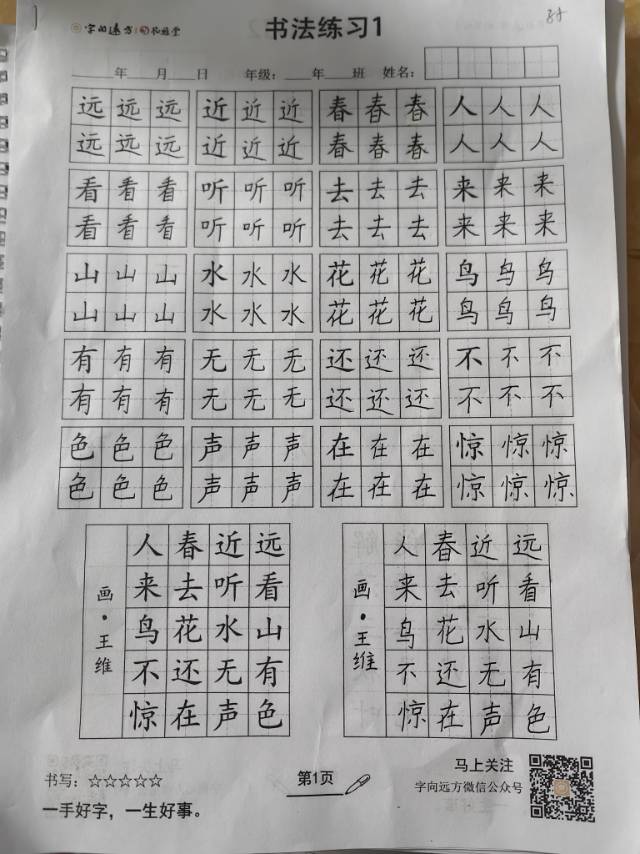 字向远方 书法练习1
____年__月__日 年级：__年__班 姓名：
远远远 近近近 春春春 人人人
远远远 近近近 春春春 人人人
看看看 听听听 去去去 来来来
看看看 听听听 去去去 来来来
山山山 水水水 花花花 鸟鸟鸟
山山山 水水水 花花花 鸟鸟鸟
有有有 无无无 还还还 不不不
有有有 无无无 还还还 不不不
色色色 声声声 在在在 惊惊惊
色色色 声声声 在在在 惊惊惊
远看山有色
近听水无声
春去花还在
人来鸟不惊
画·王维
远看山有色
近听水无声
春去花还在
人来鸟不惊
画·王维
书写：☆☆☆☆☆
一手好字，一生好事。
第1页
马上关注
字向远方微信公众号